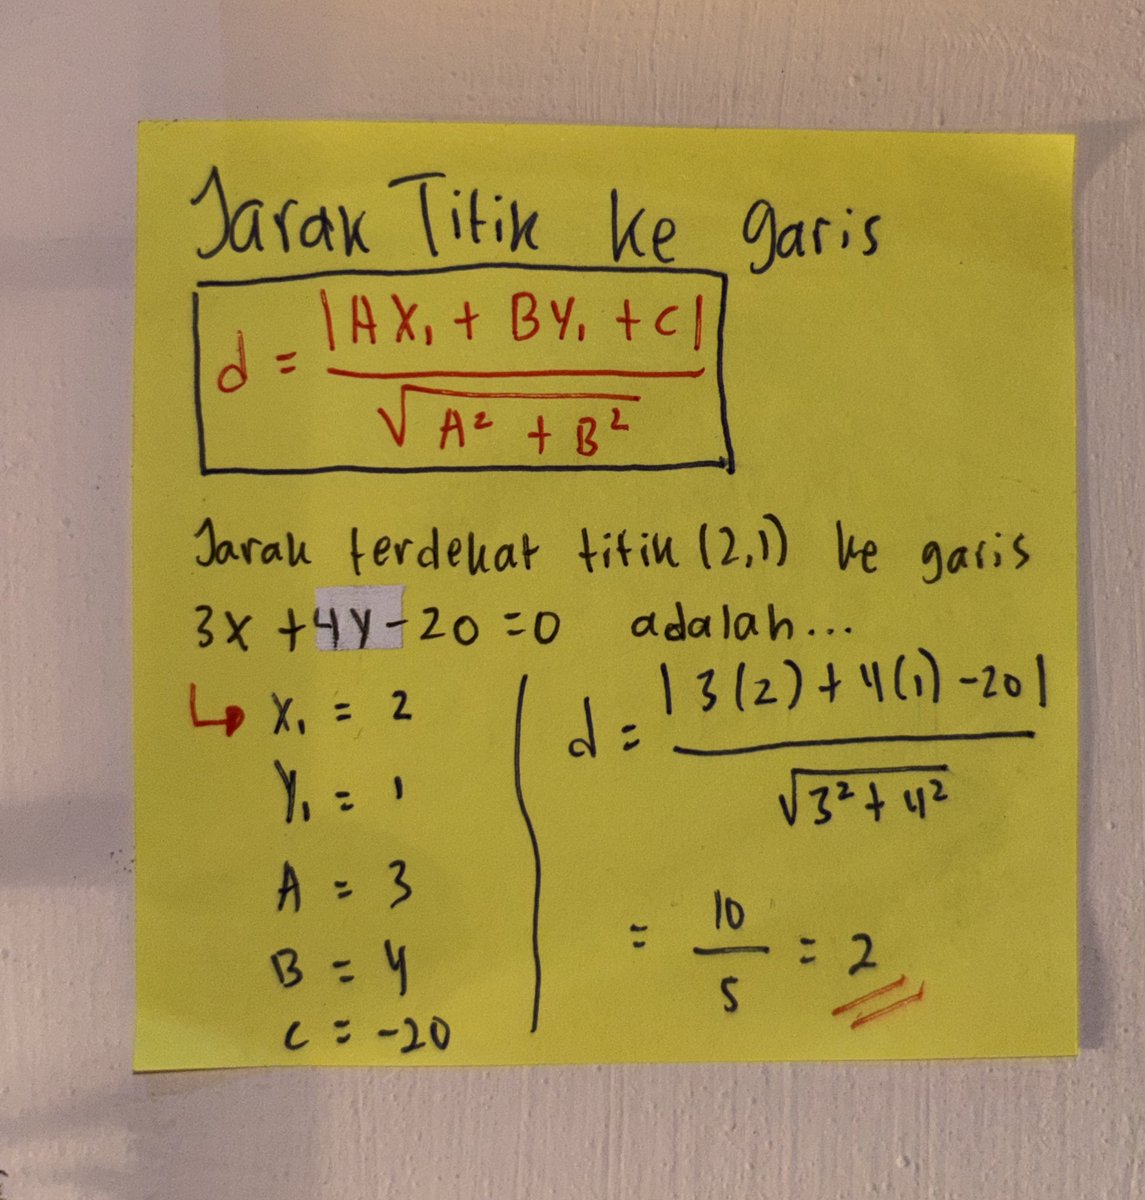 Jarak Titik ke garis
d = |AX₁ + BY₁ + C| / √(A² + B²)
Jarak terdekat titik (2,1) ke garis
3x + 4y - 20 = 0 adalah...
↳ X₁ = 2
Y₁ = 1
A = 3
B = 4
C = -20
d = |3(2) + 4(1) - 20| / √(3² + 4²)
= 10/5 = 2